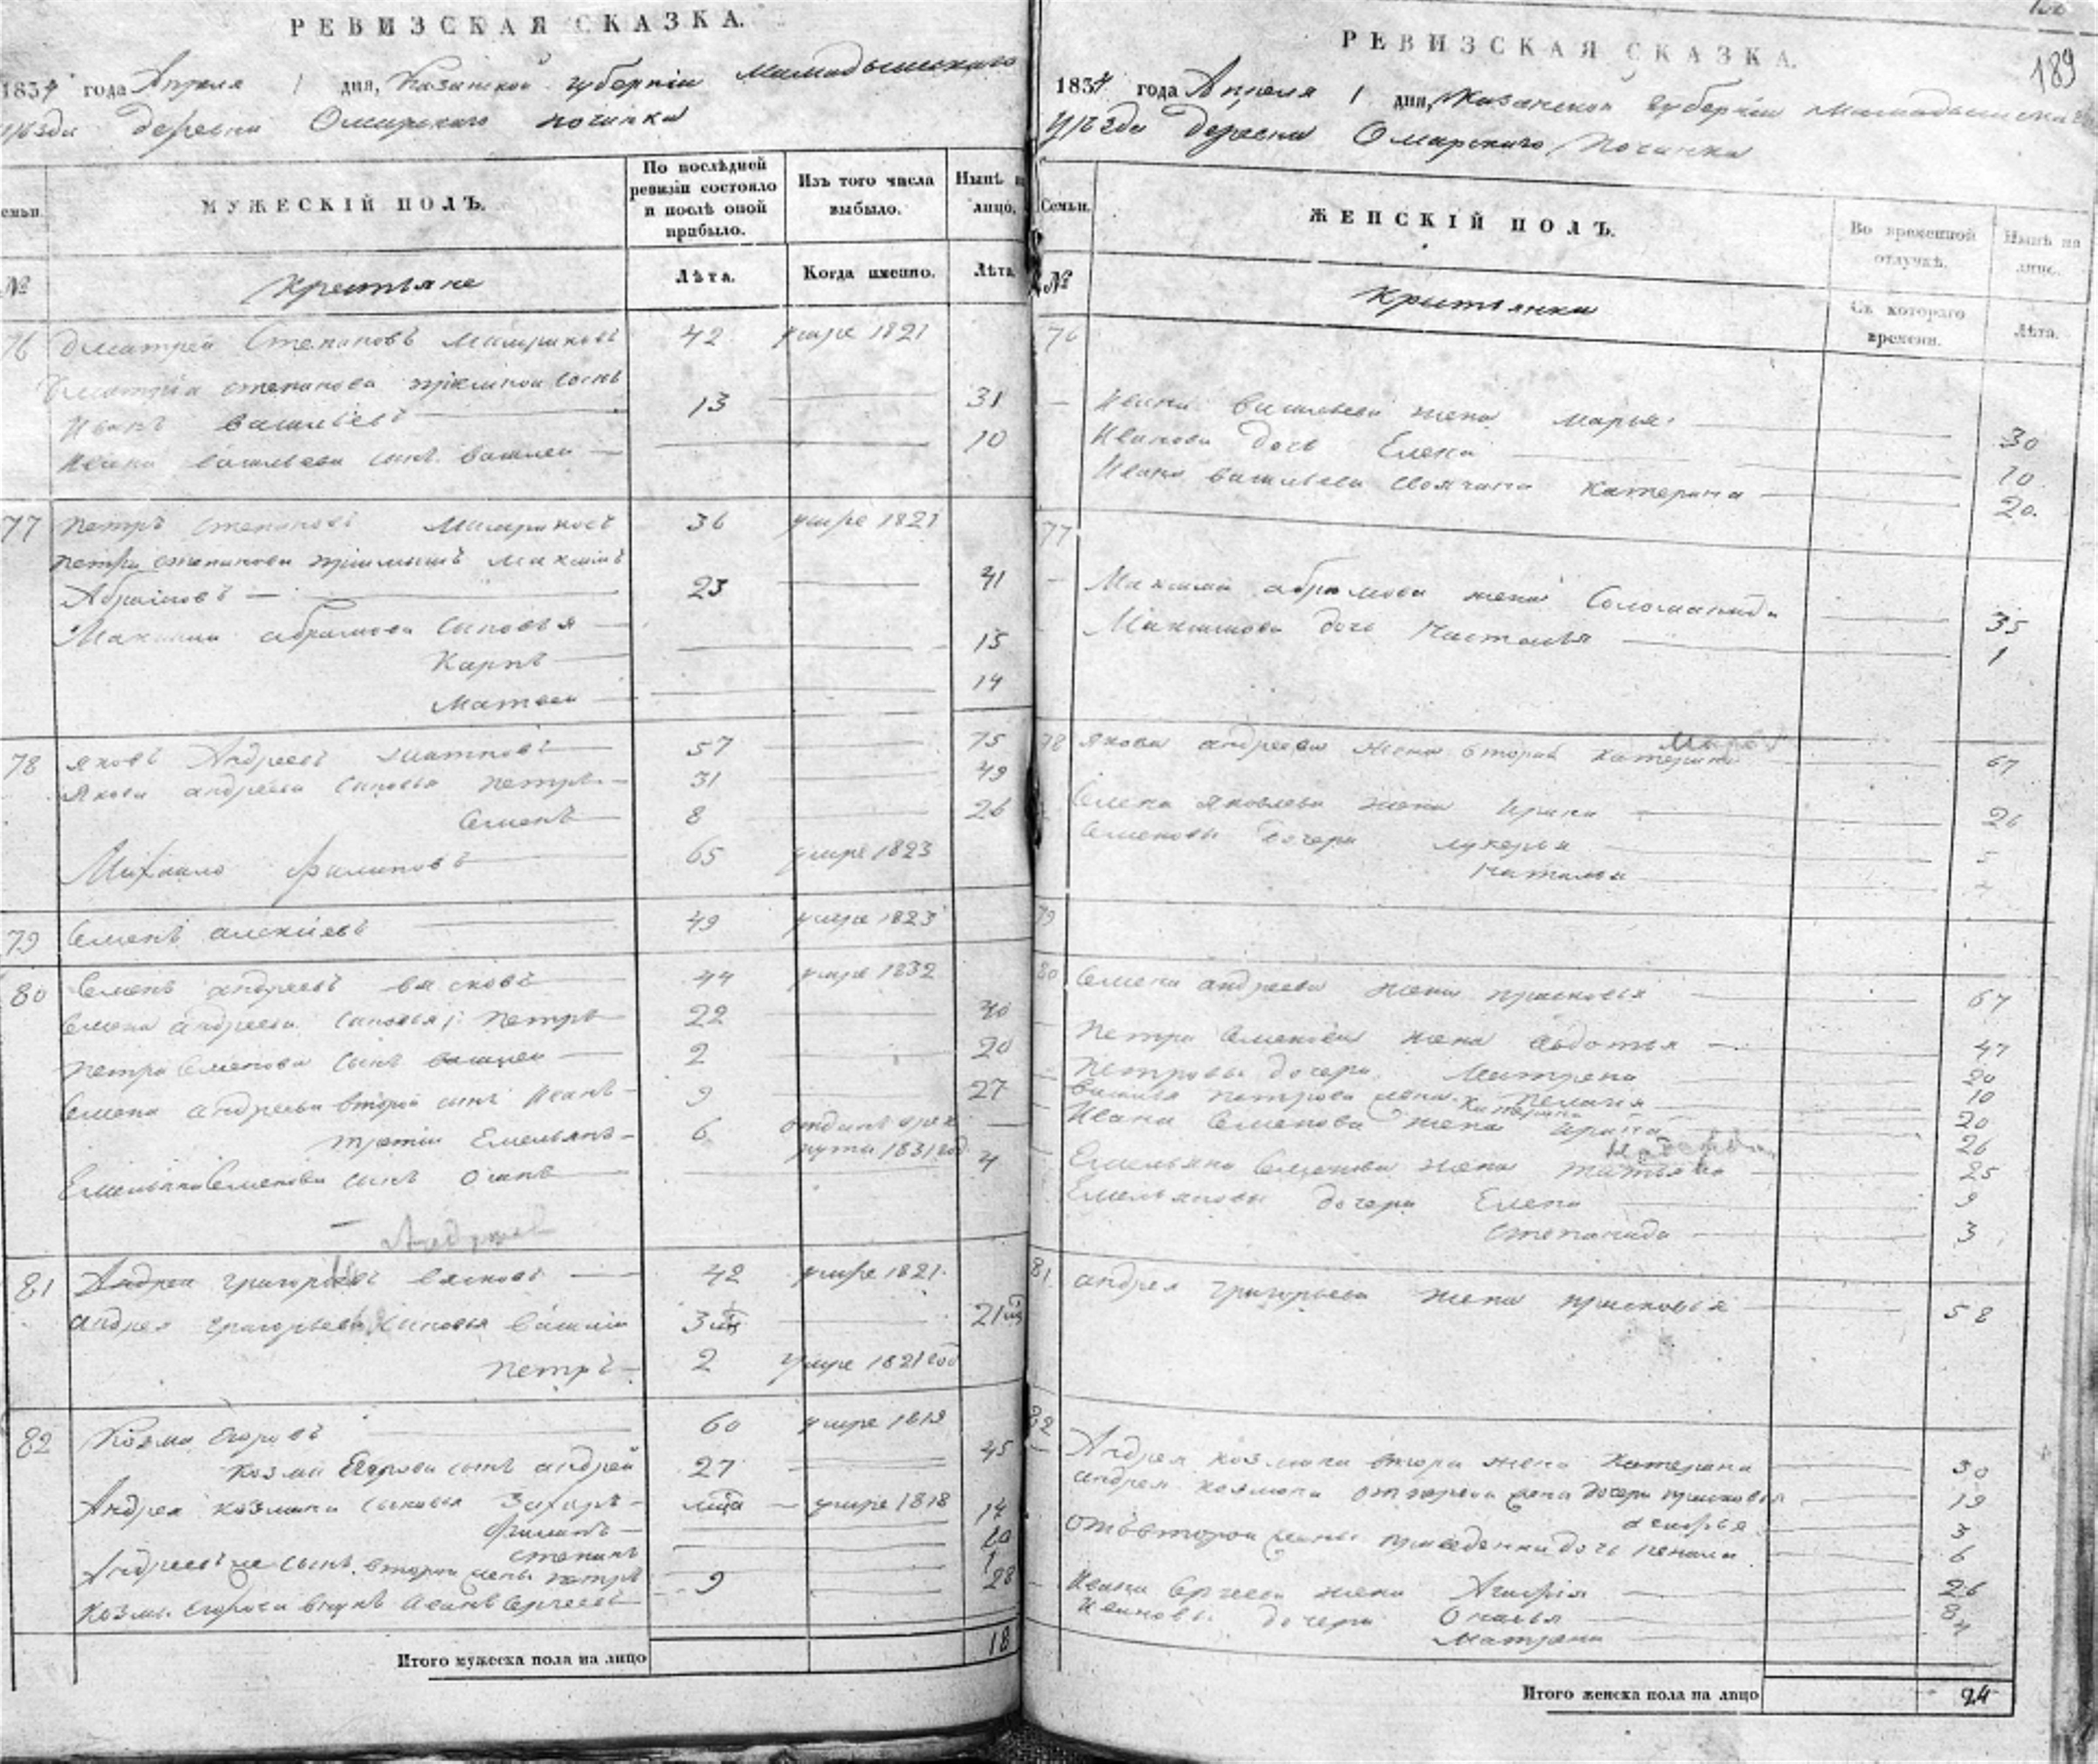 РЕВИЗСКАЯ СКАЗКА.
1834 года Апреля 1 дня, Казанской губернiи Мамадышскаго
уѣзда деревни Омарскаго починка
МУЖЕСКІЙ ПОЛЪ.
По послѣдней ревизіи состояло и послѣ оной прибыло.
Изъ того числа выбыло.
Нынѣ на лицо.
семьи.
№
Крестьяне
Лѣта.
Когда именно.
Лѣта
76 Дматрей Степановъ 42 умре 1821
Дматрiя степанова сынъ
Иванъ васильевъ 13 31
Ивана васильева сынъ васили 10
77 Петръ степановъ 36 умре 1821
Петра степанова Максимъ
Абрамовъ 23 41
Максима абрамова сыновья
Карпъ 15
Матвеи 14
78 яковъ Андреевъ 57 75
Якова андреева сыновья петръ 31 49
Семенъ 8 26
Михаило филиповъ 65 умре 1823
79 Семенъ алексіевъ 49 умре 1823
80 Семенъ андреевъ 44 умре 1832
Семена андреева сыновья: Петръ 22 40
Петра Семенова сынъ васили 2 20
Семена андреева второй сынъ Иванъ 9 27
третiи Емельянъ 6 отданъ врек
руты 1831 год
Емельяна Семенова сынъ Осипъ 4
81 Андреи григорьевъ 42 умре 1821
андрея григорьева сыновья василiи 3 21
петръ 2 умре 1821 год
82 Козма Егоровъ 60 умре 1819
Козмы Егорова сынъ андрей 27 45
Андрея козмина сыновья Захаръ умре 1818
Филипъ 14
степанъ 10
Андреевъ же сынъ второй жены петръ 1
Козмы Егорова внукъ Иванъ Сергеевъ 9 28
Итого мужеска пола на лицо 18
РЕВИЗСКАЯ СКАЗКА.
189
1834 года Апреля 1 дня, Казанской губернiи Мамадышска
уѣзда деревни Омарскаго Починка
Семьи.
ЖЕНСКІЙ ПОЛЪ.
Во временной отлучкѣ.
Нынѣ на лицо.
№
Крестьянки
Съ котораго времени.
Лѣта.
76
Ивана васильева жена марья 30
Иванова дочь Елена 10
Ивана васильева своячина Катерина 20
77
Максима абрамова жена Соломанида 35
Максимова дочь Настасья 1
78 якова андреева жена вторая катерина 67
Семена яковлева жена Ирина 26
Семеновы дочери лукерья 5
Наталья
79
80 Семена андреева жена прасковья 67
Петра Семенова жена авдотья 47
Петровы дочери Матрена 20
Пелагея 10
василья петрова жена катерина 20
Ивана Семенова жена Ирина 26
Емельяна Семенова жена татьяна 25
Емельяновы дочери Елена 9
Степанида 3
81 андрея григорьева жена прасковья 58
82
Андрея козмина втора жена Катерина 30
андрея козмина отпервои жены дочери прасковья 19
3
отъ второй жены приведенная дочь 6
Ивана Сергеева жена Агафiя 26
Ивановы дочери 8
Матрена 4
Итого женска пола на лицо 24